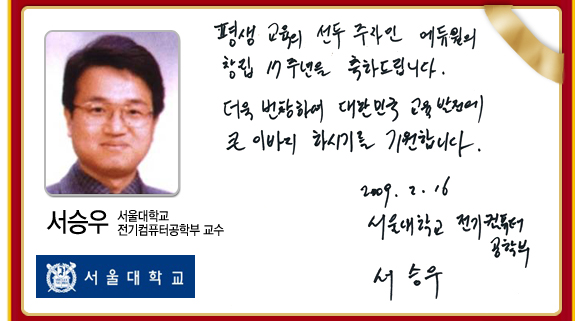 평생 교육의 선두 주자인 에듀윌의
창립 17주년을 축하드립니다.
더욱 번창하여 대한민국 교육 발전에
큰 이바지 하시기를 기원합니다.
2009. 2. 16
서울대학교 전기컴퓨터
공학부
서승우
서승우 서울대학교
전기컴퓨터공학부 교수
서울대학교